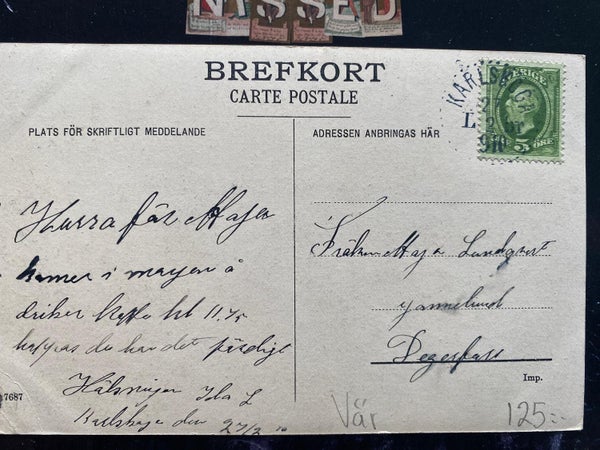 NISSED
BREFKORT
CARTE POSTALE
PLATS FÖR SKRIFTLIGT MEDDELANDE
ADRESSEN ANBRINGAS HÄR
KARLSKOGA
27
2
910
SVERIGE
5 ÖRE
Hurra för Maja
kommer i morgon å
driker kaffe kl 11.45
hoppas du har det färdigt
Hälsningar Ida L
Karlskoga den 27/2 10
Fröken Maja Lundqvist
Degerfors
7687
Imp.
Vär
125:-